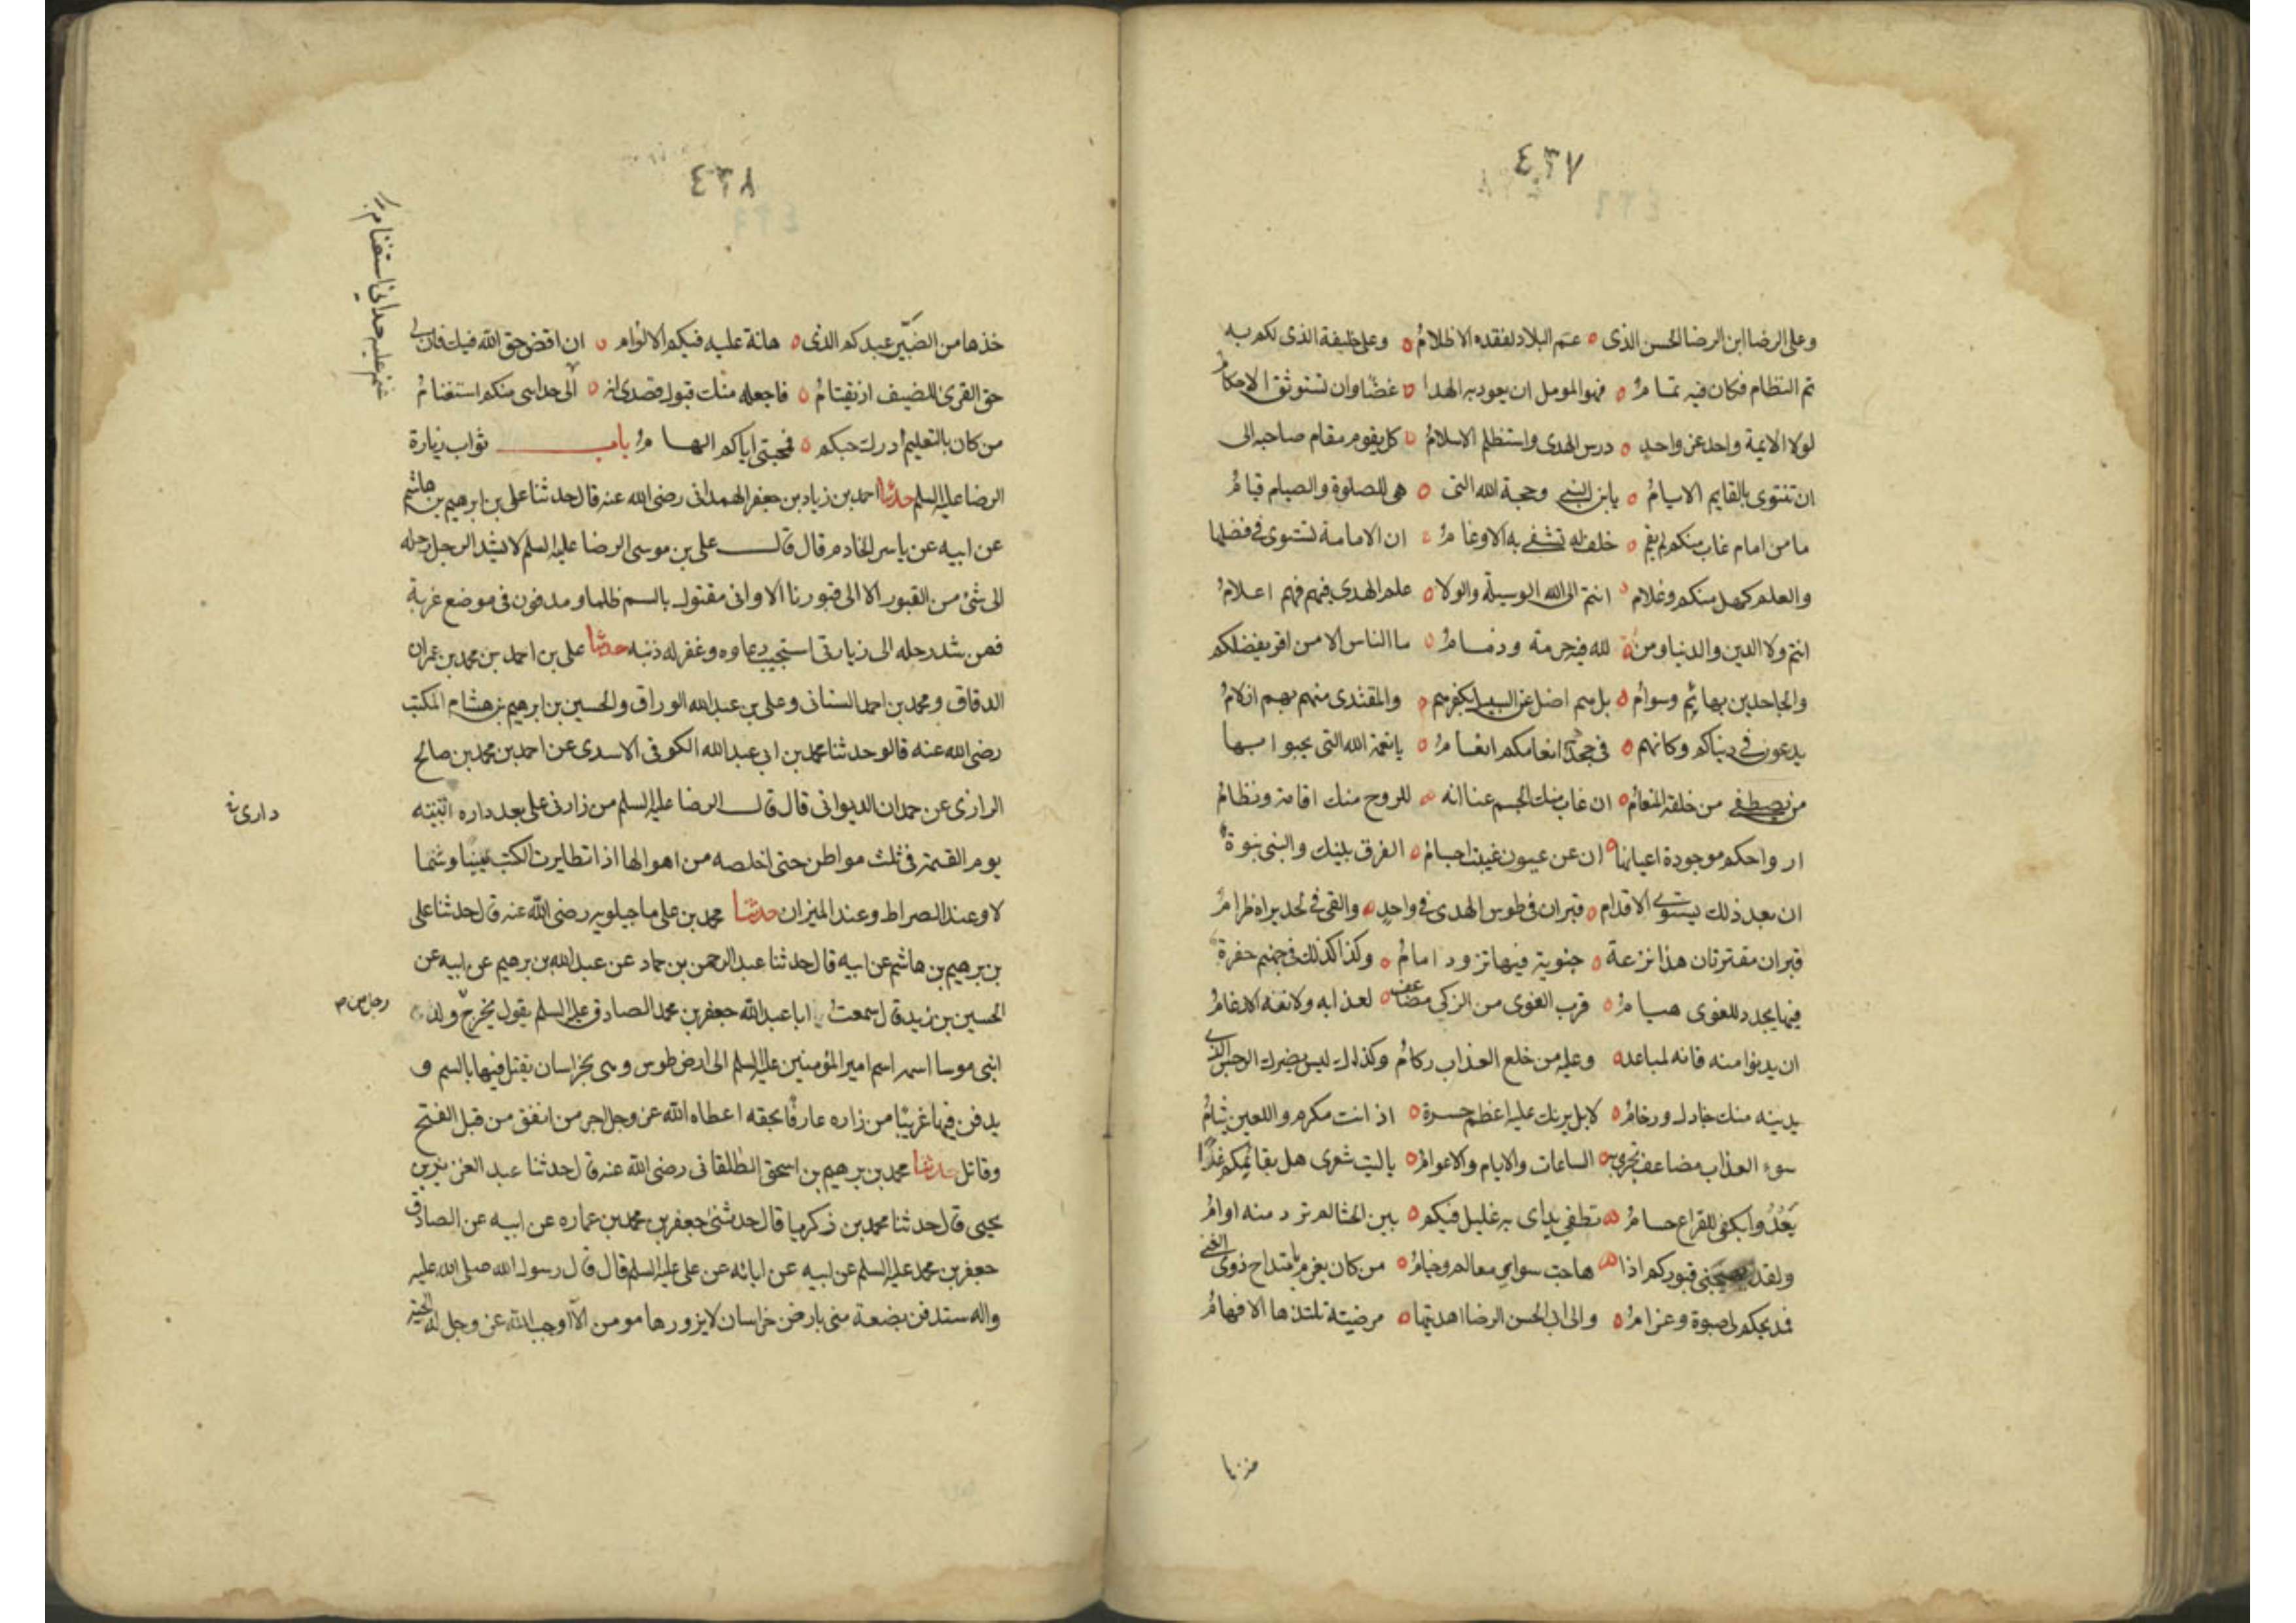 ٤٣٧
وعلى الرضا ابن الرضا الحسن الذى ه عم البلاد لفقده الاظلامُ ه وعلى خليفة الذى لكم به
تم النظام فكان فيه تمامُ ه فهو المومل ان يعود به الهدا ه غضّا وان تستوثق الاحكامُ
لولا الايمة واحد عن واحدٍ ه درس الهدى واستظلم الاسلامُ ه كل يقوم مقام صاحبه الى
ان تنتوى بالقايم الايامُ ه يابن النبي وحجة الله التى ه هى للصلوة والصيام قيامُ
ما من امام غاب منكم لم يقم ه خلف له تشفى به الاوغامُ ه ان الامامة تستوى فى فضلها
والعلم كهل منكم وغلام ه انتم الى الله الوسيلة والولا ه علم الهدى فهم اعلامُ
انتم ولا الدين والدنيا ومن ه لله فيه حرمة وذمامُ ه ما الناس الا من اقر بفضلكم
والجاحدين بهائم وسوام ه بل هم اضل عن السبيل بكفرهم ه والمقتدى منهم بهم ازلامُ
يدعون فى دنياكم وكانهم ه فى جحد انعامكم انعامُ ه يا نعمة الله التى يحبوا بها
من يصطفى من خلقه المنعامُ ه ان غاب منك الجسم عنا انه ه للروح منك اقامة ونظامُ
ارواحكم موجودة اعيانها ه ان عن عيون غيبت اجسامُ ه الفرق بينك والنبى نبوة
ان بعد ذلك يستوى الاقدام ه قبران فى طوس الهدى فى واحدٍ ه والغى فى لحد يراه ظرامُ
قبران مقترنان هذا نزعة ه جنوية فيها تزود امامُ ه وكذا كذلك فى جهنم حفرة
فيها يجدد للغوى هيامُ ه قرب الغوى من الزكى مضاعف ه لعذابه ولانفه الادغامُ
ان يدنوا منه فانه لمباعد ه وعليه من خلع العذاب ركامُ وكذلك ليس يضرك الرجس الذى
يدينه منك جنادل ورخامُ ه لا بل يرنك عليه اعظم حسرة ه اذ انت مكرم واللعين يثامُ
سوء العذاب مضاعف تجرى به ه الساعات والايام والاعوامُ ه ياليت شعرى هل بقائمكم غدًا
يَغدُوا بكفى للقراع حسامُ ه تطفى يداى به غليل فيكم ه بين الحشا لم ترد منه اوامُ
ولقد قبوركم اذا ه هاجت سواى معالم وخيامُ ه من كان يغرم بامتداح ذوى الغنى
فمديحكم لى صبوة وغرامُ ه والى ابى الحسن الرضا اهديتها ه مرضيّة تلتذها الافهامُ
٤٣٨
خذها من الضّبّى عبدكم الذى ه هانة عليه فيكم الالوام ه ان اقض حق الله فيك فان لى
حق القرى للضيف اذ يقتامُ ه فاجعله منك قبول قصدى انه ه الى حدا سى منكم استغنامُ
من كان بالتعليم ادرك حبكم ه فمحبتى اياكم الهامُ باب ثواب زيارة
الرضا عليه السلم حدثنا احمد بن زياد بن جعفر الهمدانى رضى الله عنه قال حدثنا على بن ابرهيم بن هاشم
عن ابيه عن ياسر الخادم قال قال على بن موسى الرضا عليه السلم لا يشد الرجل رحله
الى شئ من القبور الا الى قبورنا الا وانى مقتول بالسم ظلما ومدفون فى موضع غربة
فمن شد رحله الى زيارتى استجيب دعاوه وغفر له ذنبه حدثنا على بن احمد بن محمد بن عمران
الدقاق ومحمد بن احمد السنانى وعلى بن عبد الله الوراق والحسين بن ابرهيم بن هشام المكتب
رضى الله عنه قالو حدثنا محمد بن ابى عبد الله الكوفى الاسدى عن احمد بن محمد بن صالح
الرازى عن حمدان الديوانى قال قال الرضا عليه السلم من زارنى على بعد داره اتيته
يوم القيمة فى ثلث مواطن حتى اخلصه من اهوالها اذا تطايرت الكتب يمينا وشما
لا وعند الصراط وعند الميزان حدثنا محمد بن على ماجيلويه رضى الله عنه قال حدثنا على
بن برهيم بن هاشم عن ابيه قال حدثنا عبد الرحمن بن حماد عن عبد الله بن برهيم عن ابيه عن
الحسين بن زيد قال سمعت ابا عبد الله جعفر بن محمد الصادق عليه السلم يقول يخرج ولد
ابنى موسا اسمه اسم امير المؤمنين عليه السلم الى ارض طوس وهى بخراسان يقتل فيها بالسم و
يدفن فيها غريبًا من زاره عارفًا بحقه اعطاه الله عز وجل اجر من انفق من قبل الفتح
وقاتل حدثنا محمد بن برهيم بن اسحق الطلقانى رضى الله عنه قال حدثنا عبد العزيز بن
يحيى قال حدثنا محمد بن زكريا قال حدثنى جعفر بن محمد بن عماره عن ابيه عن الصادق
جعفر بن محمد عليه السلم عن ابيه عن ابائه عن على عليه السلم قال قال رسول الله صلى الله عليه
واله ستدفن بضعة منى بارض خراسان لا يزورها مومن الا اوجب الله عز وجل له الجنة
دارى
رجل من